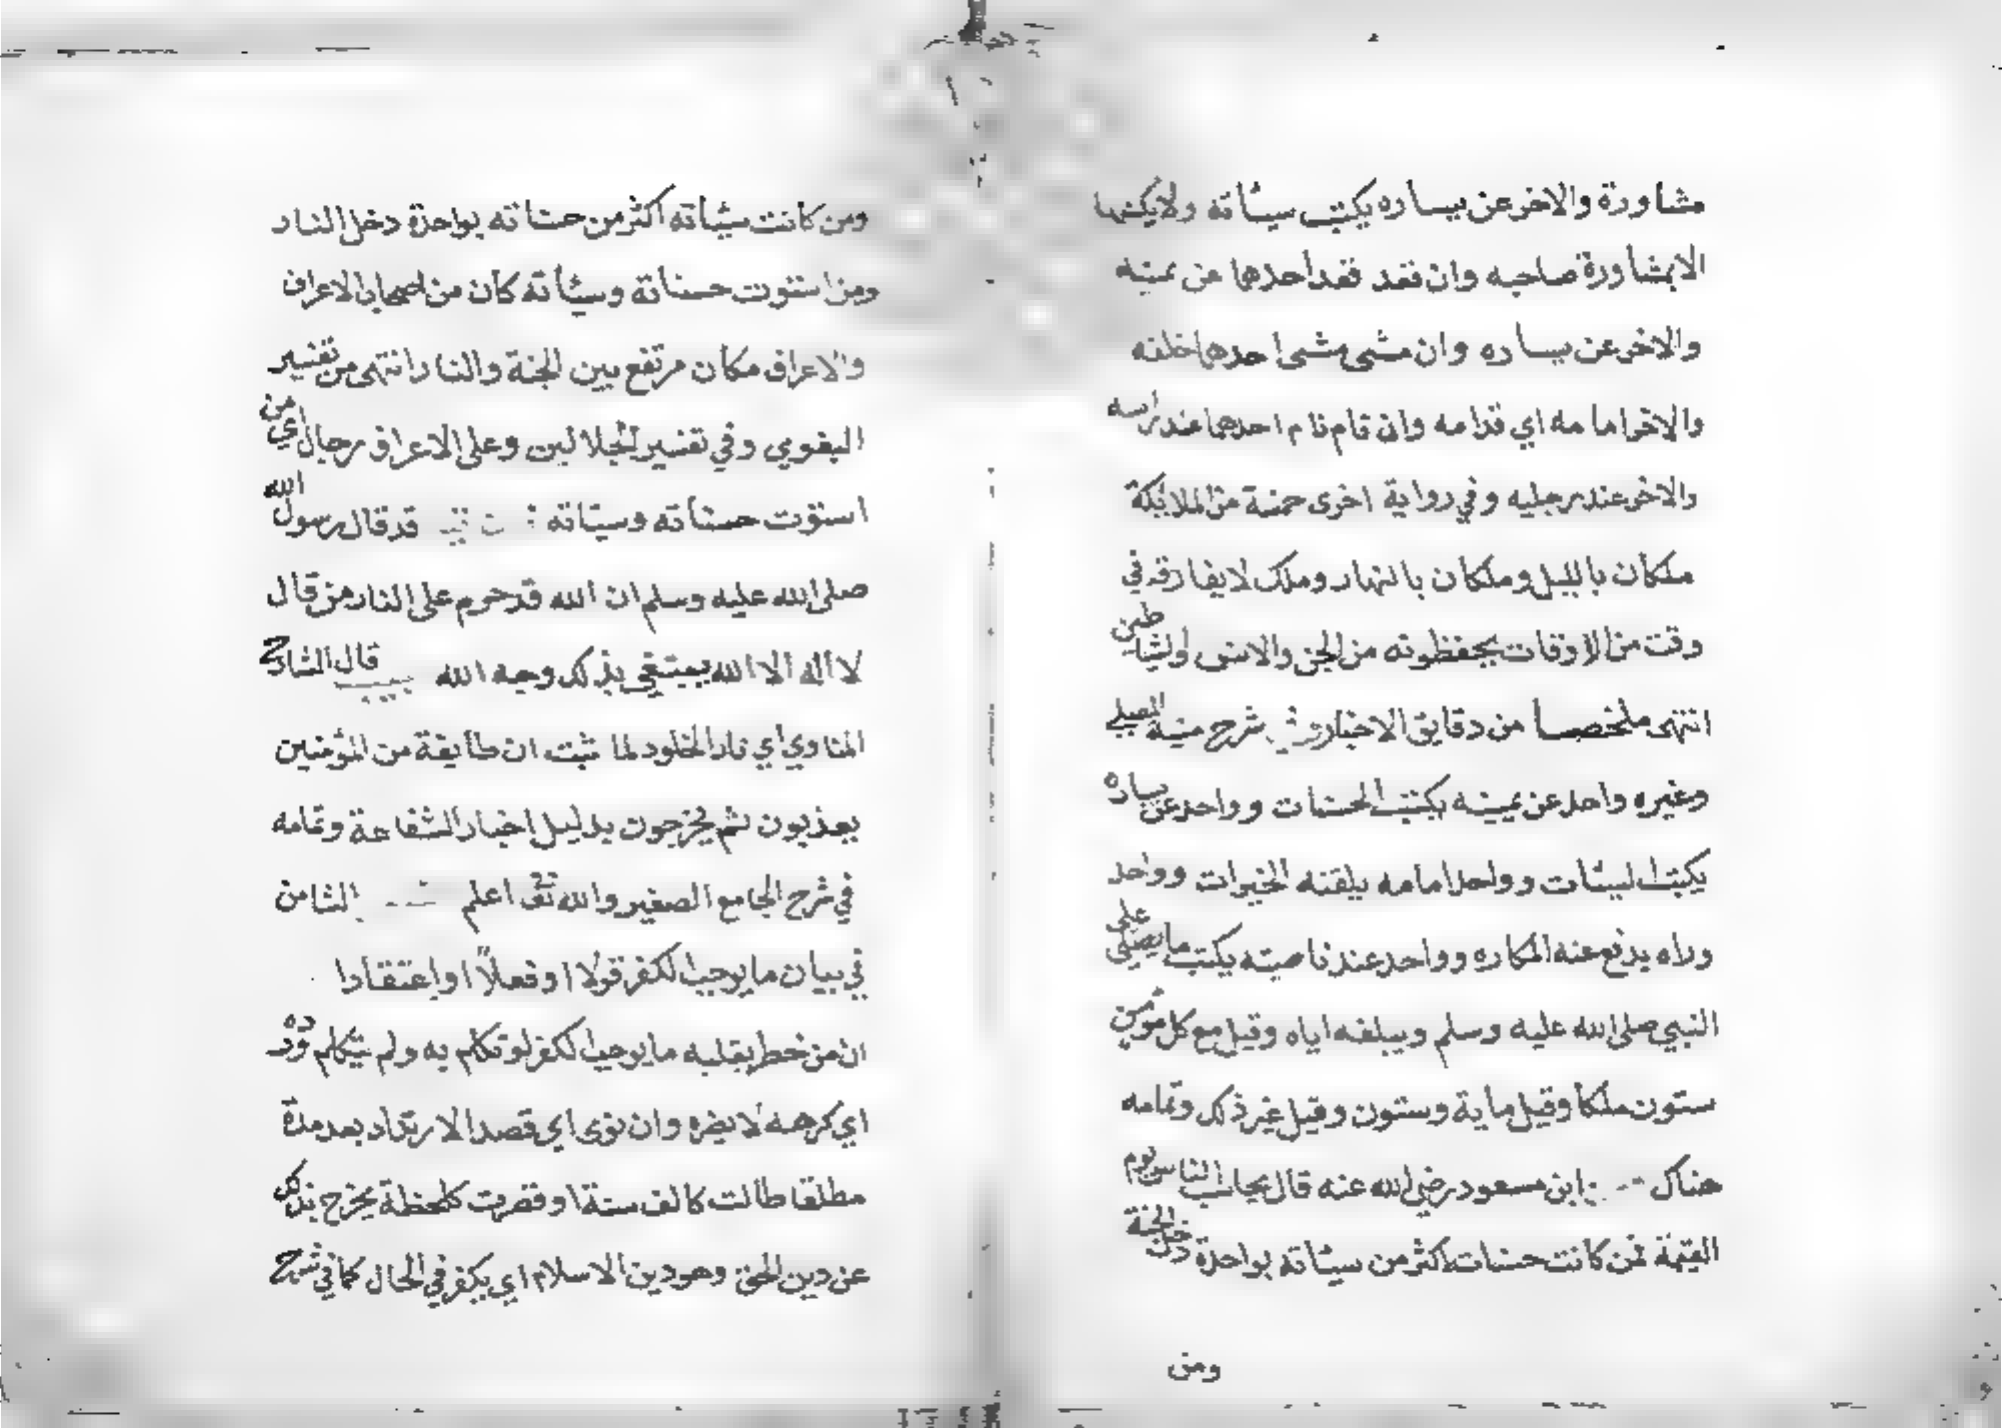 مشاورة والاخر عن يساره يكتب سيئاته ولا يكتبها
الا بمشاورة صاحبه وان قعد قعد احدهما عن يمينه
والاخر عن يساره وان مشى مشى احدهما خلفه
والاخر امامه اي قدامه وان نام نام احدهما عند راسه
والاخر عند رجليه وفي رواية اخرى خمسة من الملائكة
ملكان بالليل وملكان بالنهار وملك لا يفارقه في
وقت من الاوقات يحفظونه من الجن والانس والشياطين
انتهى ملخصا من دقايق الاخبار وفي شرح منية المصلي
وغيره واحد عن يمينه يكتب الحسنات وواحد عن يساره
يكتب السيئات وواحد امامه يلقنه الخيرات وواحد
وراه يدفع عنه المكاره وواحد عند ناصيته يكتب ما يصلي على
النبي صلى الله عليه وسلم ويبلغه اياه وقيل مع كل مؤمن
ستون ملكا وقيل ماية وستون وقيل غير ذلك وتمامه
هناك ابن مسعود رضي الله عنه قال يحاسب الناس يوم
القيمة فمن كانت حسناته اكثر من سيئاته بواحدة دخل الجنة
ومن
ومن كانت سيئاته اكثر من حسناته بواحدة دخل النار
ومن استوت حسناته وسيئاته كان من اصحاب الاعراف
والاعراف مكان مرتفع بين الجنة والنار انتهى من تفسير
البغوي وفي تفسير الجلالين وعلى الاعراف رجال اي من
استوت حسناته وسيئاته قد قال رسول الله
صلى الله عليه وسلم ان الله قد حرم على النار من قال
لا اله الا الله يبتغي بذلك وجه الله قال الشارح
المناوي اي نار الخلود لما ثبت ان طايفة من المؤمنين
يعذبون ثم يخرجون بدليل اخبار الشفاعة وتمامه
في شرح الجامع الصغير والله تعالى اعلم الثامن
في بيان ما يوجب الكفر قولا او فعلاً او اعتقادا
ان من خطر بقلبه ما يوجب الكفر لو تكلم به ولم يتكلم وده
اي كرهه لا يضره وان نوى اي قصد الارتداد بعد مدة
مطلقا طالت كالف سنة او قصرت كلحظة يخرج بذلك
عن دين الحق وهو دين الاسلام اي يكفر في الحال كما في شرح